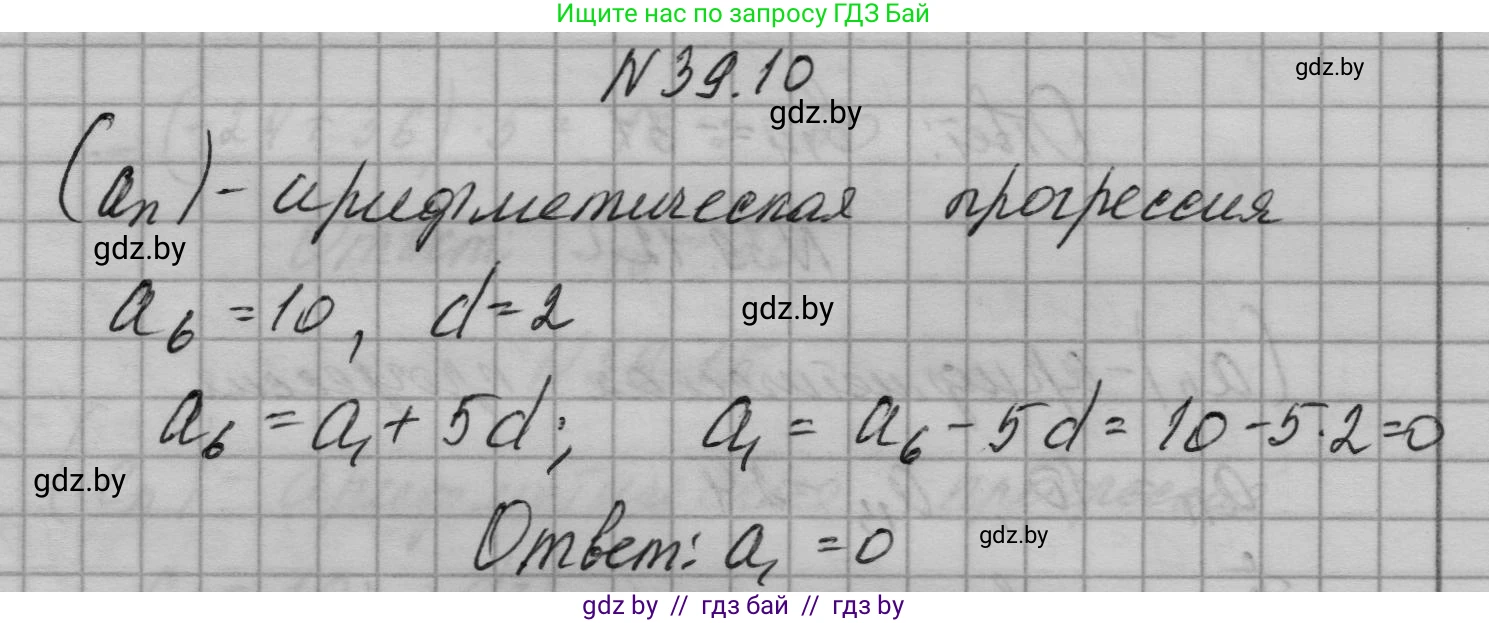 Ищите нас по запросу ГДЗ Бай
N 39.10
gdz.by
gdz.by
(aₙ) - арифметическая прогрессия
gdz.by
a₆ = 10, d = 2
gdz.by
a₆ = a₁ + 5d; a₁ = a₆ - 5d = 10 - 5·2 = 0
gdz.by
Ответ: a₁ = 0
gdz.by
gdz by // гдз бай // гдз by